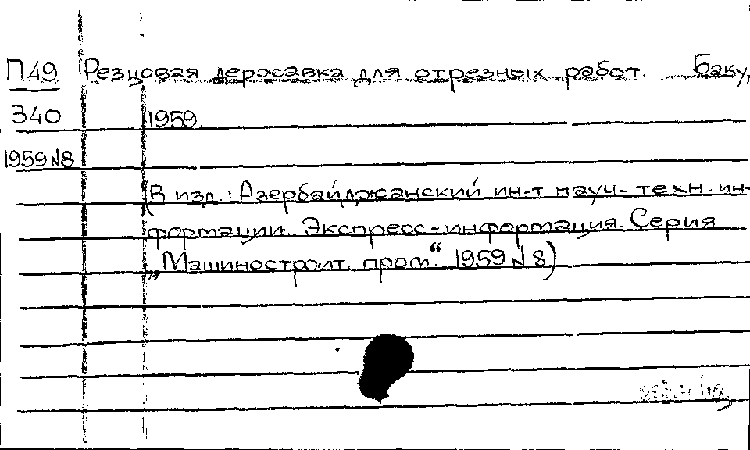 П49 Резцовая державка для отрезных работ. Баку,
340 1959
1959 №8
(В изд.: Азербайджанский ин-т науч.-техн. ин-
формации. Экспресс-информация. Серия
„Машиностроит. пром.“ 1959 № 8)